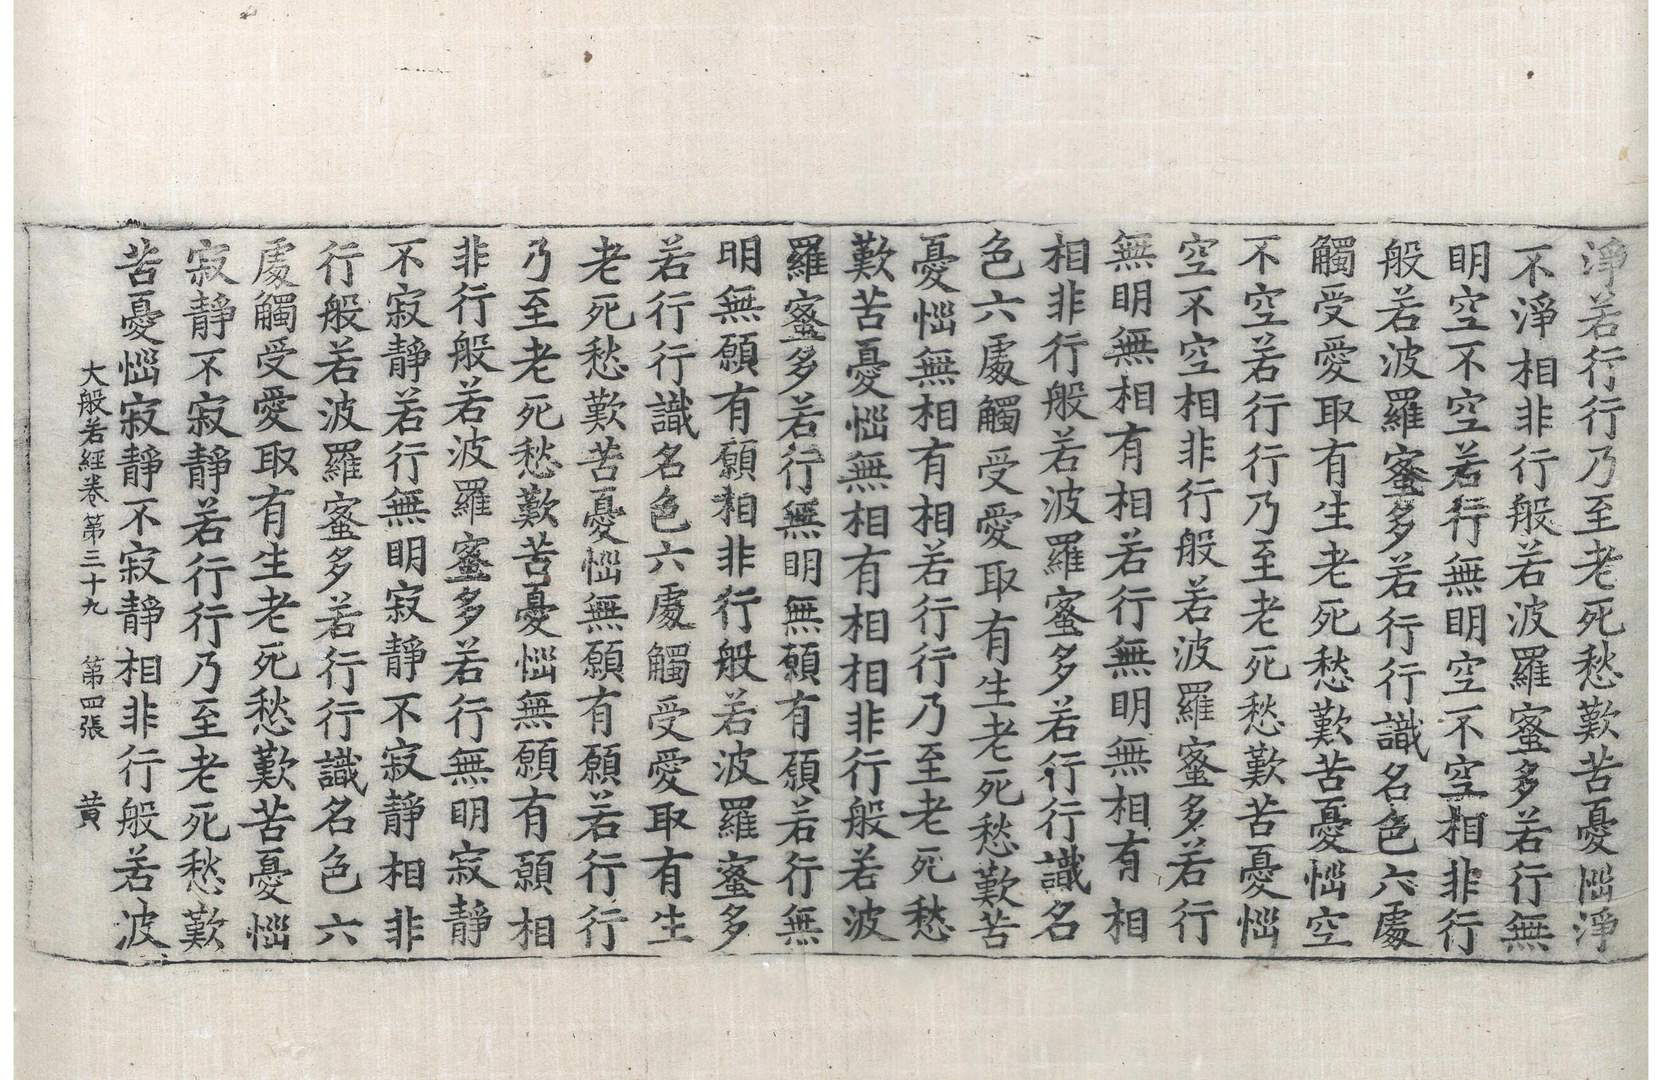 淨若行行乃至老死愁歎苦憂惱淨
不淨相非行般若波羅蜜多若行無
明空不空若行無明空不空相非行
般若波羅蜜多若行行識名色六處
觸受愛取有生老死愁歎苦憂惱空
不空若行行乃至老死愁歎苦憂惱
空不空相非行般若波羅蜜多若行
無明無相有相若行無明無相有相
相非行般若波羅蜜多若行行識名
色六處觸受愛取有生老死愁歎苦
憂惱無相有相若行行乃至老死愁
歎苦憂惱無相有相相非行般若波
羅蜜多若行無明無願有願若行無
明無願有願相非行般若波羅蜜多
若行行識名色六處觸受愛取有生
老死愁歎苦憂惱無願有願若行行
乃至老死愁歎苦憂惱無願有願相
非行般若波羅蜜多若行無明寂靜
不寂靜若行無明寂靜不寂靜相非
行般若波羅蜜多若行行識名色六
處觸受愛取有生老死愁歎苦憂惱
寂靜不寂靜若行行乃至老死愁歎
苦憂惱寂靜不寂靜相非行般若波
大般若經卷第三十九 第四張 黄